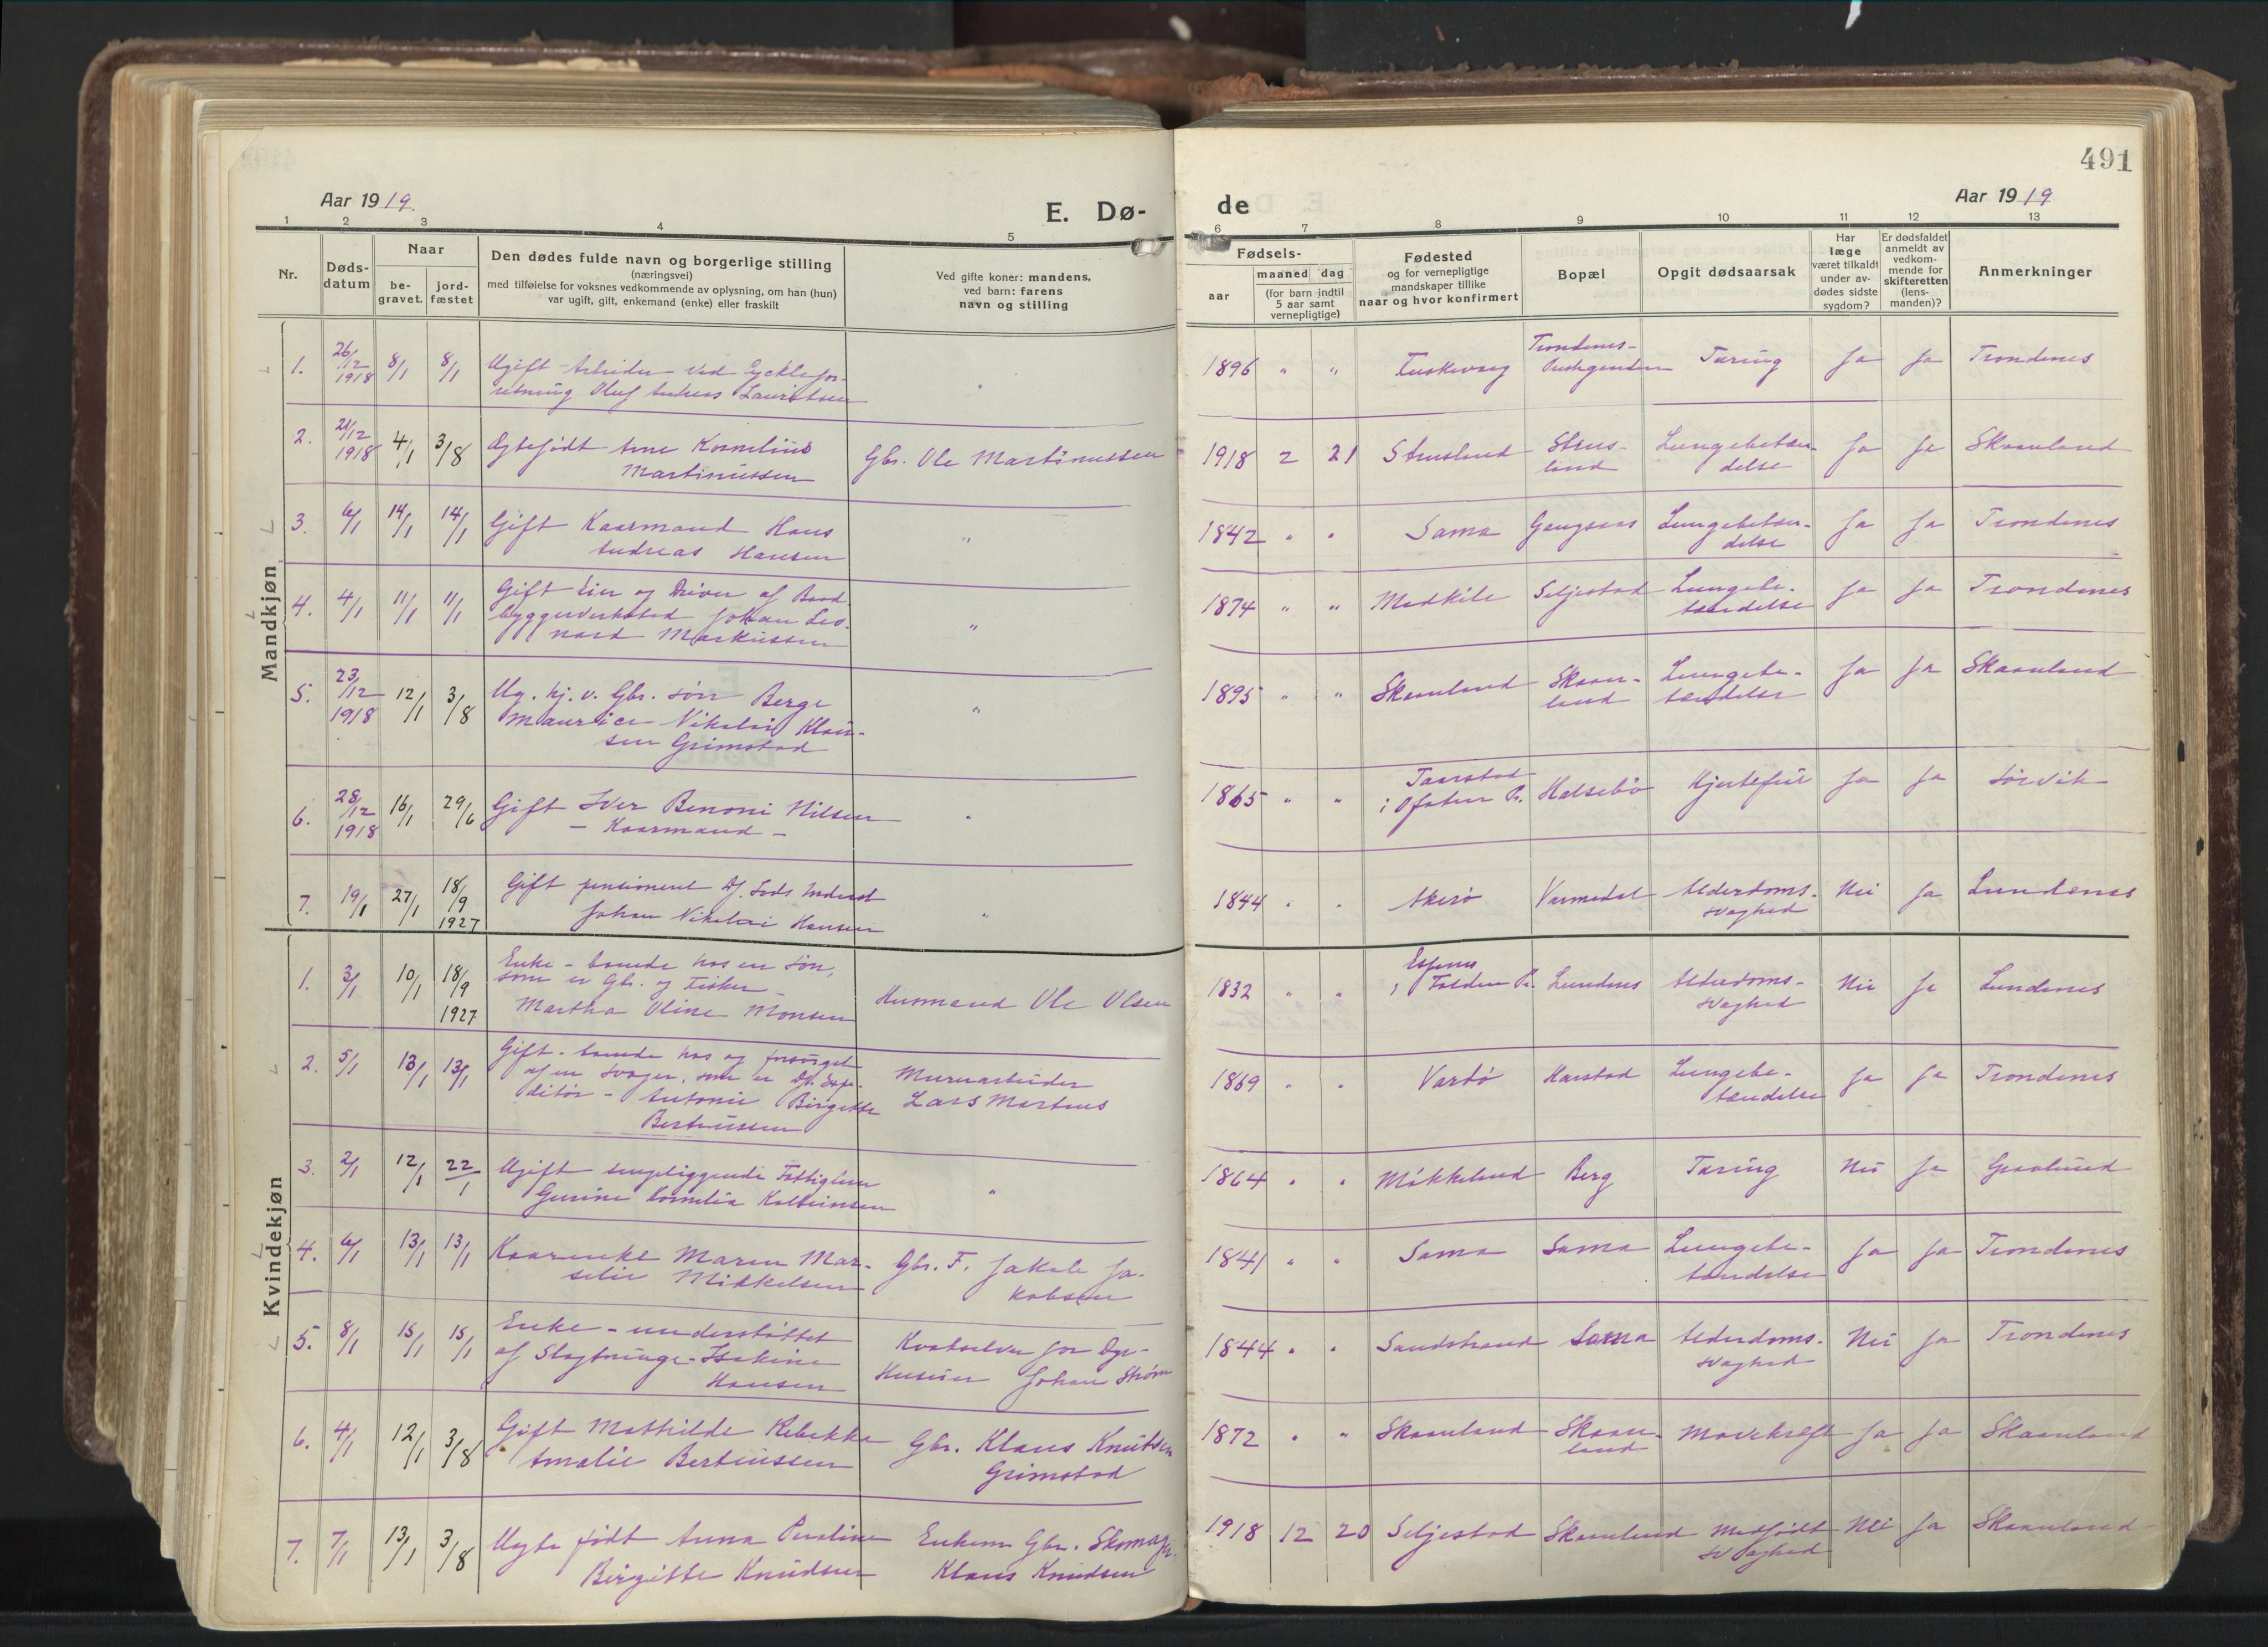 491
Aar 1919.
E. Dø-
de
Aar 1919
1 2 3 4 5 6 7 8 9 10 11 12 13
Nr.
Døds-
datum
Naar
be-
gravet.
jord-
fæstet
Den dødes fulde navn og borgerlige stilling
(næringsvei)
med tilføielse for voksnes vedkommende av oplysning, om han (hun)
var ugift, gift, enkemand (enke) eller fraskilt
Ved gifte koner: mandens,
ved barn: farens
navn og stilling
Fødsels-
aar
maaned dag
(for barn indtil
5 aar samt
vernepligtige)
Fødested
og for vernepligtige
mandskaper tillike
naar og hvor konfirmert
Bopæl
Opgit dødsaarsak
Har
læge
været tilkaldt
under av-
dødes sidste
sygdom?
Er dødsfaldet
anmeldt av
vedkom-
mende for
skifteretten
(lens-
manden)?
Anmerkninger
Mandkjøn
1. 26/12 1918 8/1 8/1 Ugift Arbeider ved
retning Oluf Andreas Lauritsen
" 1896 " " Trondenes- Tæring Ja Ja Trondenes
2. 21/12 1918 4/1 3/8 Ægtefødt Arne Kornelius
Martinussen
Gbr. Ole Martinussen 1918 2 21 Strusland Strus-
land Lungebetæn-
delse Ja Ja Skaanland
3. 6/1 14/1 14/1 Gift Kaarmand Hans
Andreas Hansen
" 1842 " " Sama Gangsaas Lungebetæn-
delse Ja Ja Trondenes
4. 4/1 11/1 11/1 Gift Eier og Driver af Baad
byggerverksted Johan Leo-
nard Markussen
" 1874 " " Medkile Seljestad Lungebe-
tændelse Ja Ja Trondenes
5. 23/12 1918 12/1 3/8 Ug. hj. v. Gbr. søn Berge
Maurice Nikolai Klau-
sen Grimstad
" 1895 " " Skaanland Skaan-
land Lungebe-
tændelse Ja Ja Skaanland
6. 28/12 1918 16/1 29/6 Gift Iver Benoni Nilsen
- Kaarmand -
" 1865 " " Taarstad
i Ofoten Pr. Halsebø Hjertefeil Ja Ja Sørvik
7. 19/1 27/1 18/9 1927 Gift pensioneret
Johan Nikolai Hansen
" 1844 " " Akerø Varmedal Alderdoms-
svaghed Nei Ja Lundenes
Kvindekjøn
1. 3/1 10/1 18/9 1927 Enke - boende hos en søn,
som er Gbr. og Fisker -
Martha Oline Monsen
Husmand Ole Olsen 1832 " " Espenes
i Folden Pr. Lundenes Alderdoms-
svaghed Nei Ja Lundenes
2. 5/1 13/1 13/1 Gift - boende hos og forsørget
af en Svoger, som er Df. Expe-
ditør - Antonie Birgitte
Berteussen
Murerarbeider
Lars Martens 1869 " " Vardø Harstad Lungebe-
tændelse Ja Ja Trondenes
3. 2/1 12/1 22/1 Ugift sengeliggende Fattiglem
Gurine Kornelia Kolbeinsen
" 1864 " " Mikkelund Berg Tæring Nei Ja Gravlund
4. 6/1 13/1 13/1 Kaarenke Maren Mar-
selie Mikkelsen
Gbr. F. Jakob Ja-
kobsen 1841 " " Sama Sama Lungebe-
tændelse Ja Ja Trondenes
5. 8/1 15/1 15/1 Enke - understøttet
af Slegtninge - Isakine
Hansen
Kvaksalver for Dyr -
Husmæn Johan Strøm 1844 " " Sandstrand Sama Alderdoms-
svaghed Nei Ja Trondenes
6. 4/1 12/1 3/8 Gift Mathilde Rebekka
Amalie Berteussen
Gbr. Klaus Knutsen
Grimstad 1872 " " Skaanland Skaan-
land Mavekræft Ja Ja Skaanland
7. 7/1 13/1 3/8 Ægte født Anna Peraline
Birgitte Knudsen
Enkem Gbr. Skomager
Klaus Knudsen 1918 12 20 Seljestad Skaanland Medfødt
svaghed Nei Ja Skaanland